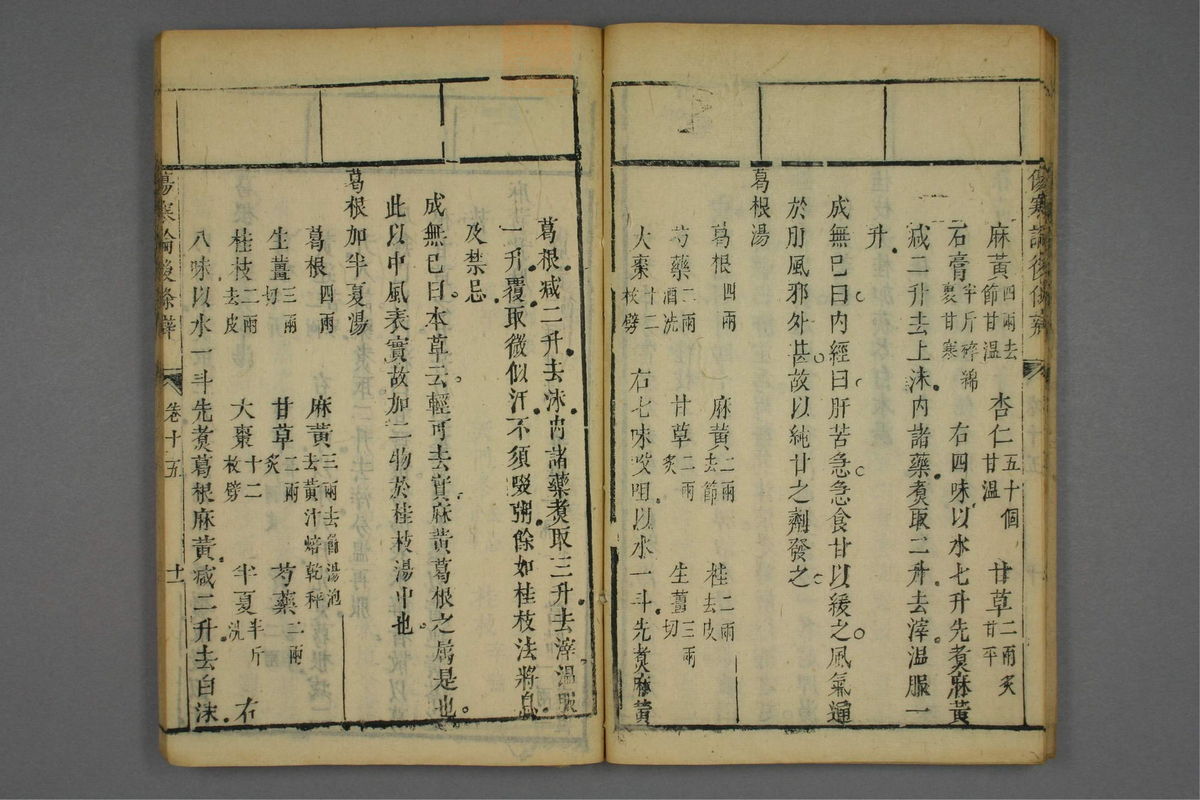 傷寒論後條辯
麻黃四兩去節甘溫 杏仁五十個甘溫 甘草二兩炙甘平
石膏半斤碎綿裹甘寒 右四味以水七升先煮麻黃
減二升去上沫内諸藥煮取二升去滓溫服一
升
成無已曰内經曰肝苦急急食甘以緩之風氣通
於肝風邪外甚故以純甘之劑發之
葛根湯
葛根四兩 麻黃二兩去節 桂二兩去皮
芍藥二兩酒洗 甘草二兩炙 生薑三兩切
大棗十二枚劈 右七味㕮咀以水一斗先煮麻黃
葛根减二升去沫内諸藥煮取三升去滓溫服
一升覆取微似汗不須啜粥餘如桂枝法將息
及禁忌
成無已曰本草云輕可去實麻黃葛根之屬是也
此以中風表實故加二物於桂枝湯中也
葛根加半夏湯
葛根四兩 麻黃三兩去節湯泡去黃汁焙乾秤
生薑三兩切 甘草二兩炙 芍藥二兩
桂枝二兩去皮 大棗十二枚劈 半夏半斤洗 右
八味以水一斗先煮葛根麻黃减二升去白沫
傷寒論後條辯 卷十五 十一